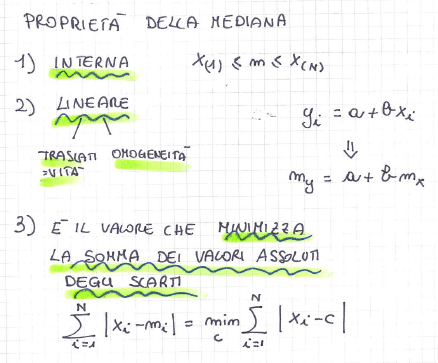 PROPRIETÀ DELLA MEDIANA
1) INTERNA x(1) ≤ m ≤ x(N)
2) LINEARE yi = a + bxi
⇓
TRASLATI OMOGENEITÀ
VITÀ
my = a + b mx
3) È IL VALORE CHE MINIMIZZA
LA SOMMA DEI VALORI ASSOLUTI
DEGLI SCARTI
N Σ i=1 |xi - mi| = min c N Σ i=1 |xi - c|